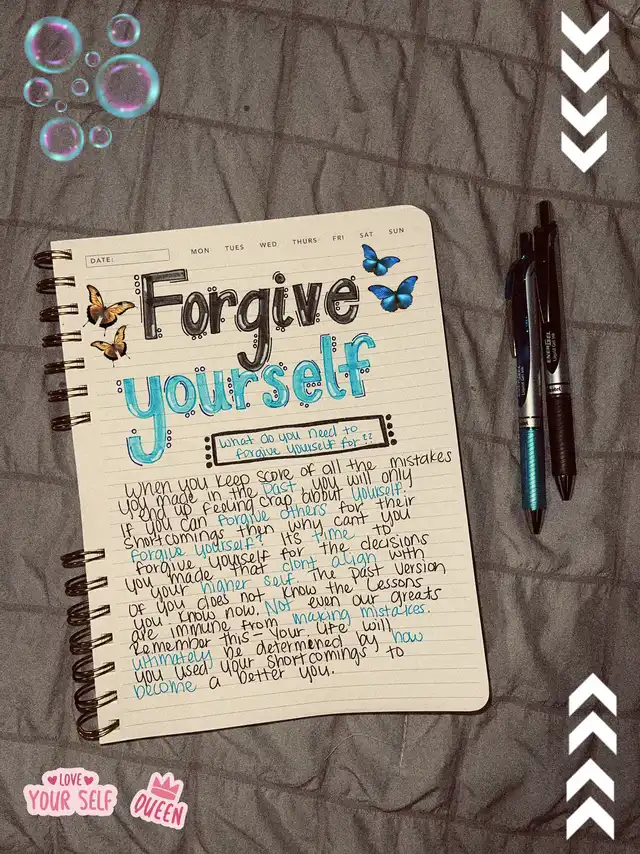 DATE:
MON TUES WED THURS FRI SAT SUN
Forgive
yourself
What do you need to
forgive yourself for??
When you keep score of all the mistakes
you made in the past you will only
end up feeling crap about yourself.
If you can forgive others for their
shortcomings then why cant you
forgive yourself? It's time to
forgive yourself for the decisions
you made that dont align with
your higher self. The past version
of you does not know the lessons
you know now. Not even our greats
are immune from making mistakes.
Remember this - Your life will
ultimately be determined by how
you used your shortcomings to
become a better you.
LOVE
YOUR SELF
QUEEN
ENERGEL